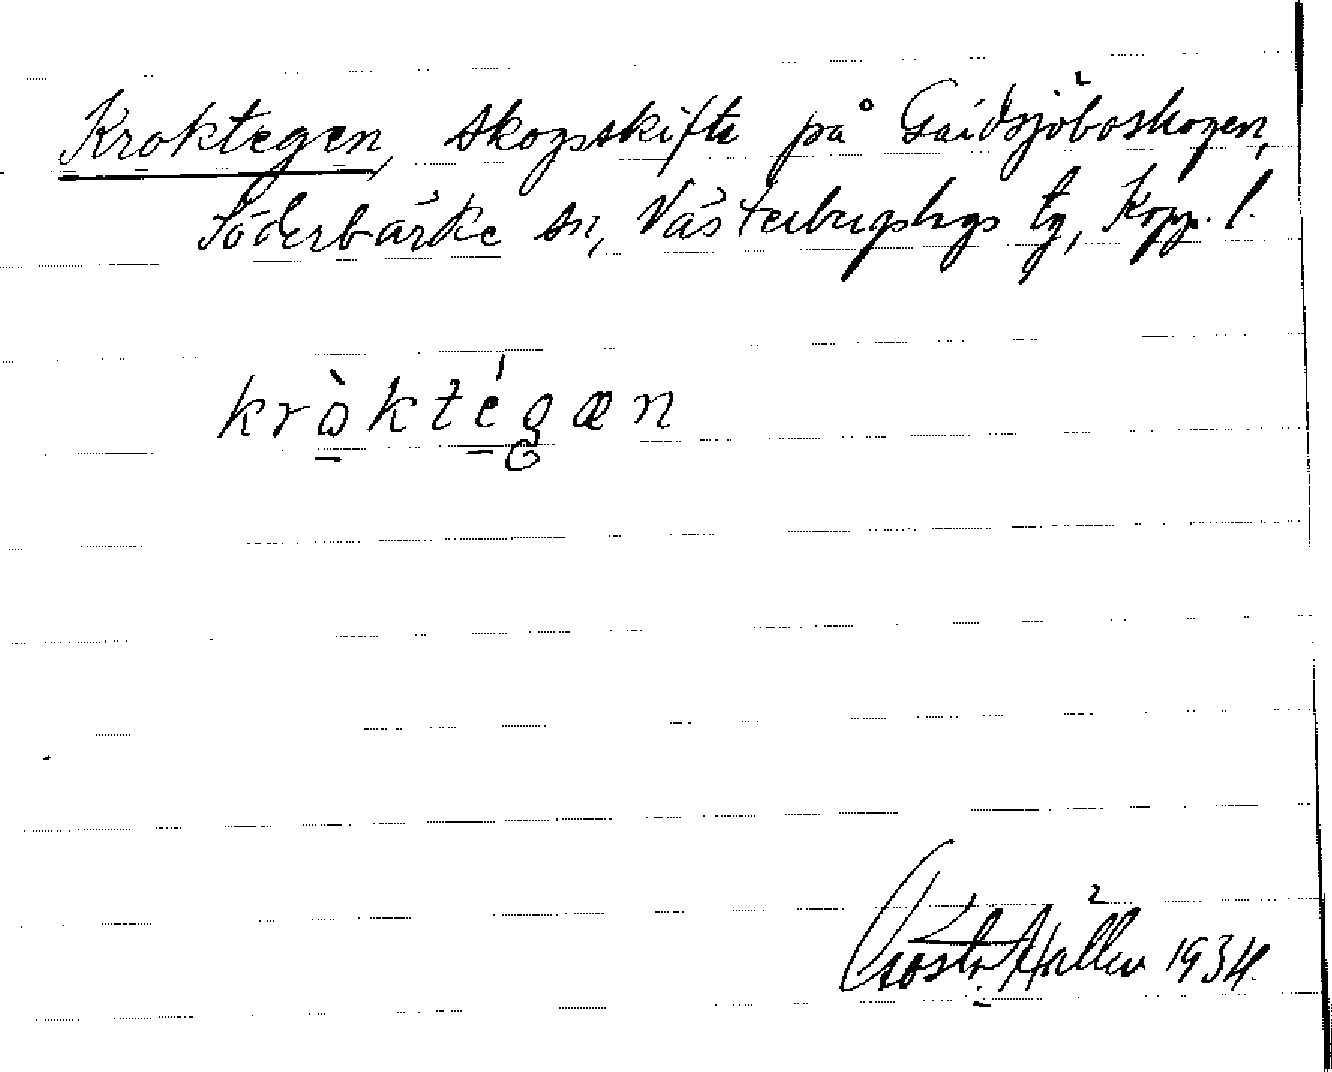 Kroktegen, skogsskifte på Gaddsjöboskogen,
Söderbärke sn, Västerbergslags tg, Kopp. l.
kròktégæn
Gösta Hallén 1934.